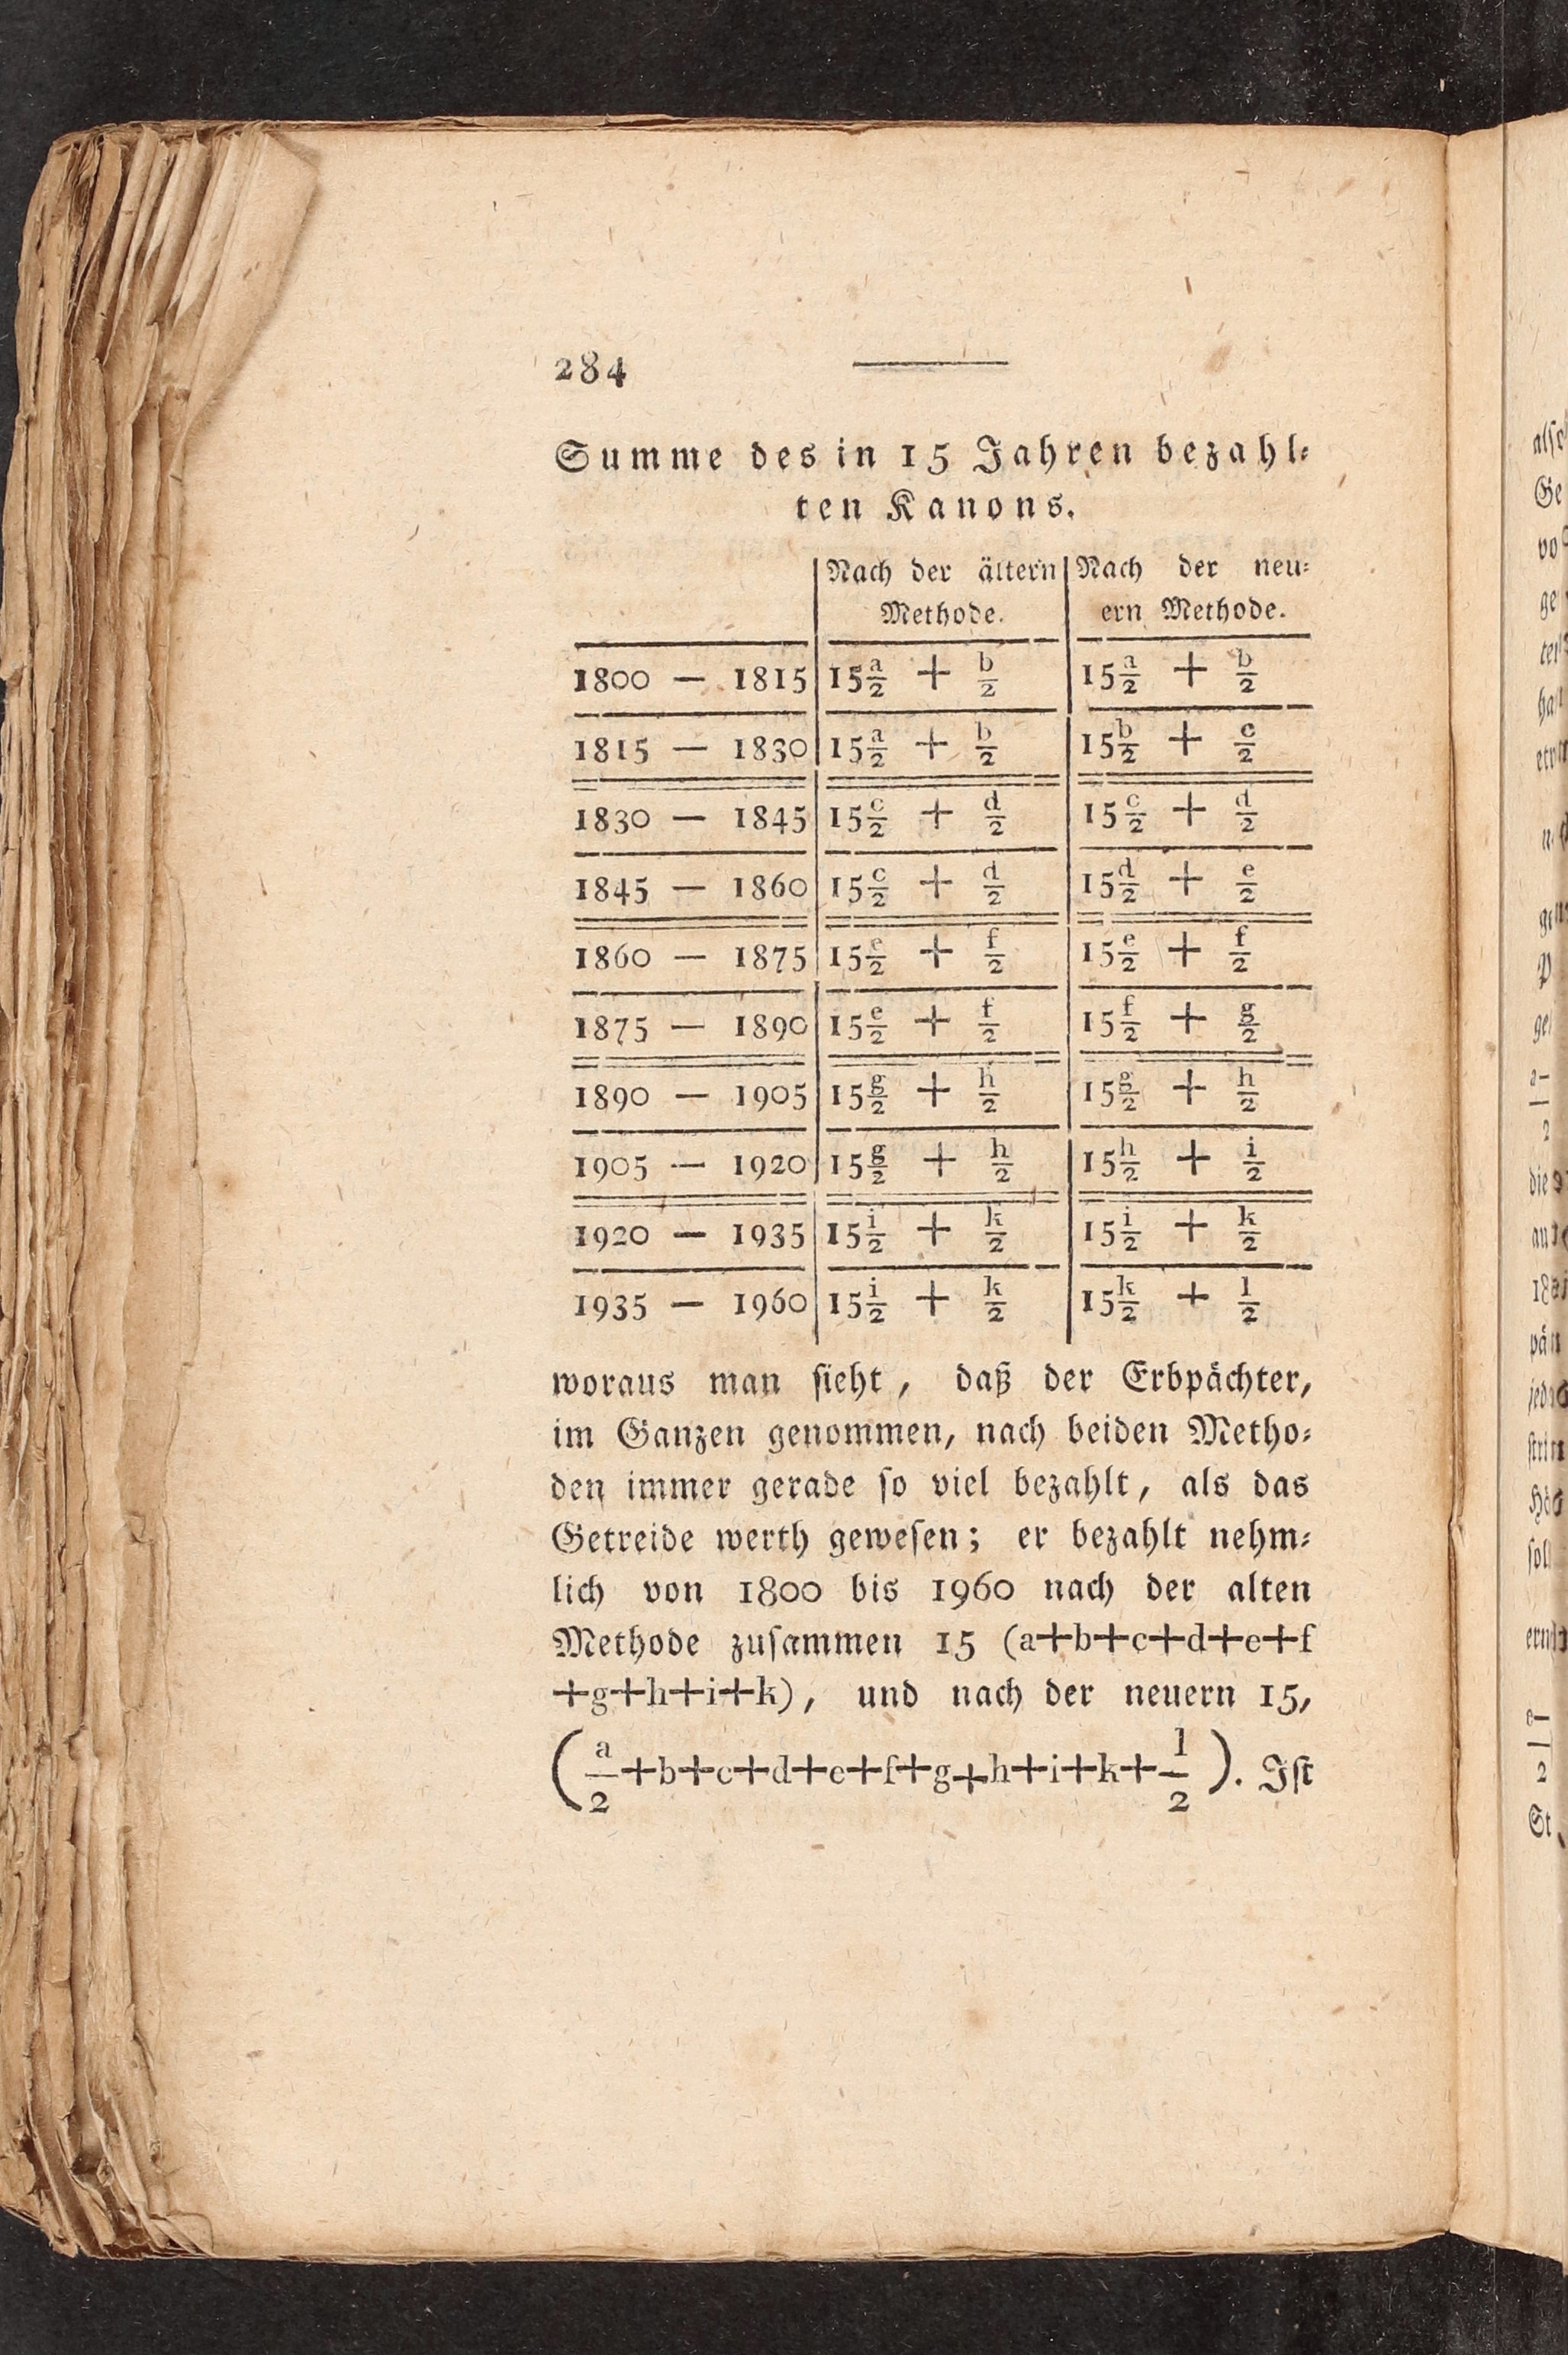 284
Summe des in 15 Jahren bezahl⸗
ten Kanons.
Nach der ältern Methode. | Nach der neu⸗ern Methode.
1800 — 1815 | 15 a/2 + b/2 | 15 a/2 + b/2
1815 — 1830 | 15 a/2 + b/2 | 15 b/2 + c/2
1830 — 1845 | 15 c/2 + d/2 | 15 c/2 + d/2
1845 — 1860 | 15 c/2 + d/2 | 15 d/2 + e/2
1860 — 1875 | 15 e/2 + f/2 | 15 e/2 + f/2
1875 — 1890 | 15 e/2 + f/2 | 15 f/2 + g/2
1890 — 1905 | 15 g/2 + h/2 | 15 g/2 + h/2
1905 — 1920 | 15 g/2 + h/2 | 15 h/2 + i/2
1920 — 1935 | 15 i/2 + k/2 | 15 i/2 + k/2
1935 — 1960 | 15 i/2 + k/2 | 15 k/2 + l/2
woraus man sieht, daß der Erbpächter,
im Ganzen genommen, nach beiden Metho⸗
den immer gerade so viel bezahlt, als das
Getreide werth gewesen; er bezahlt nehm⸗
lich von 1800 bis 1960 nach der alten
Methode zusammen 15 (a+b+c+d+e+f
+g+h+i+k), und nach der neuern 15,
(a/2+b+c+d+e+f+g+h+i+k+l/2). Ist